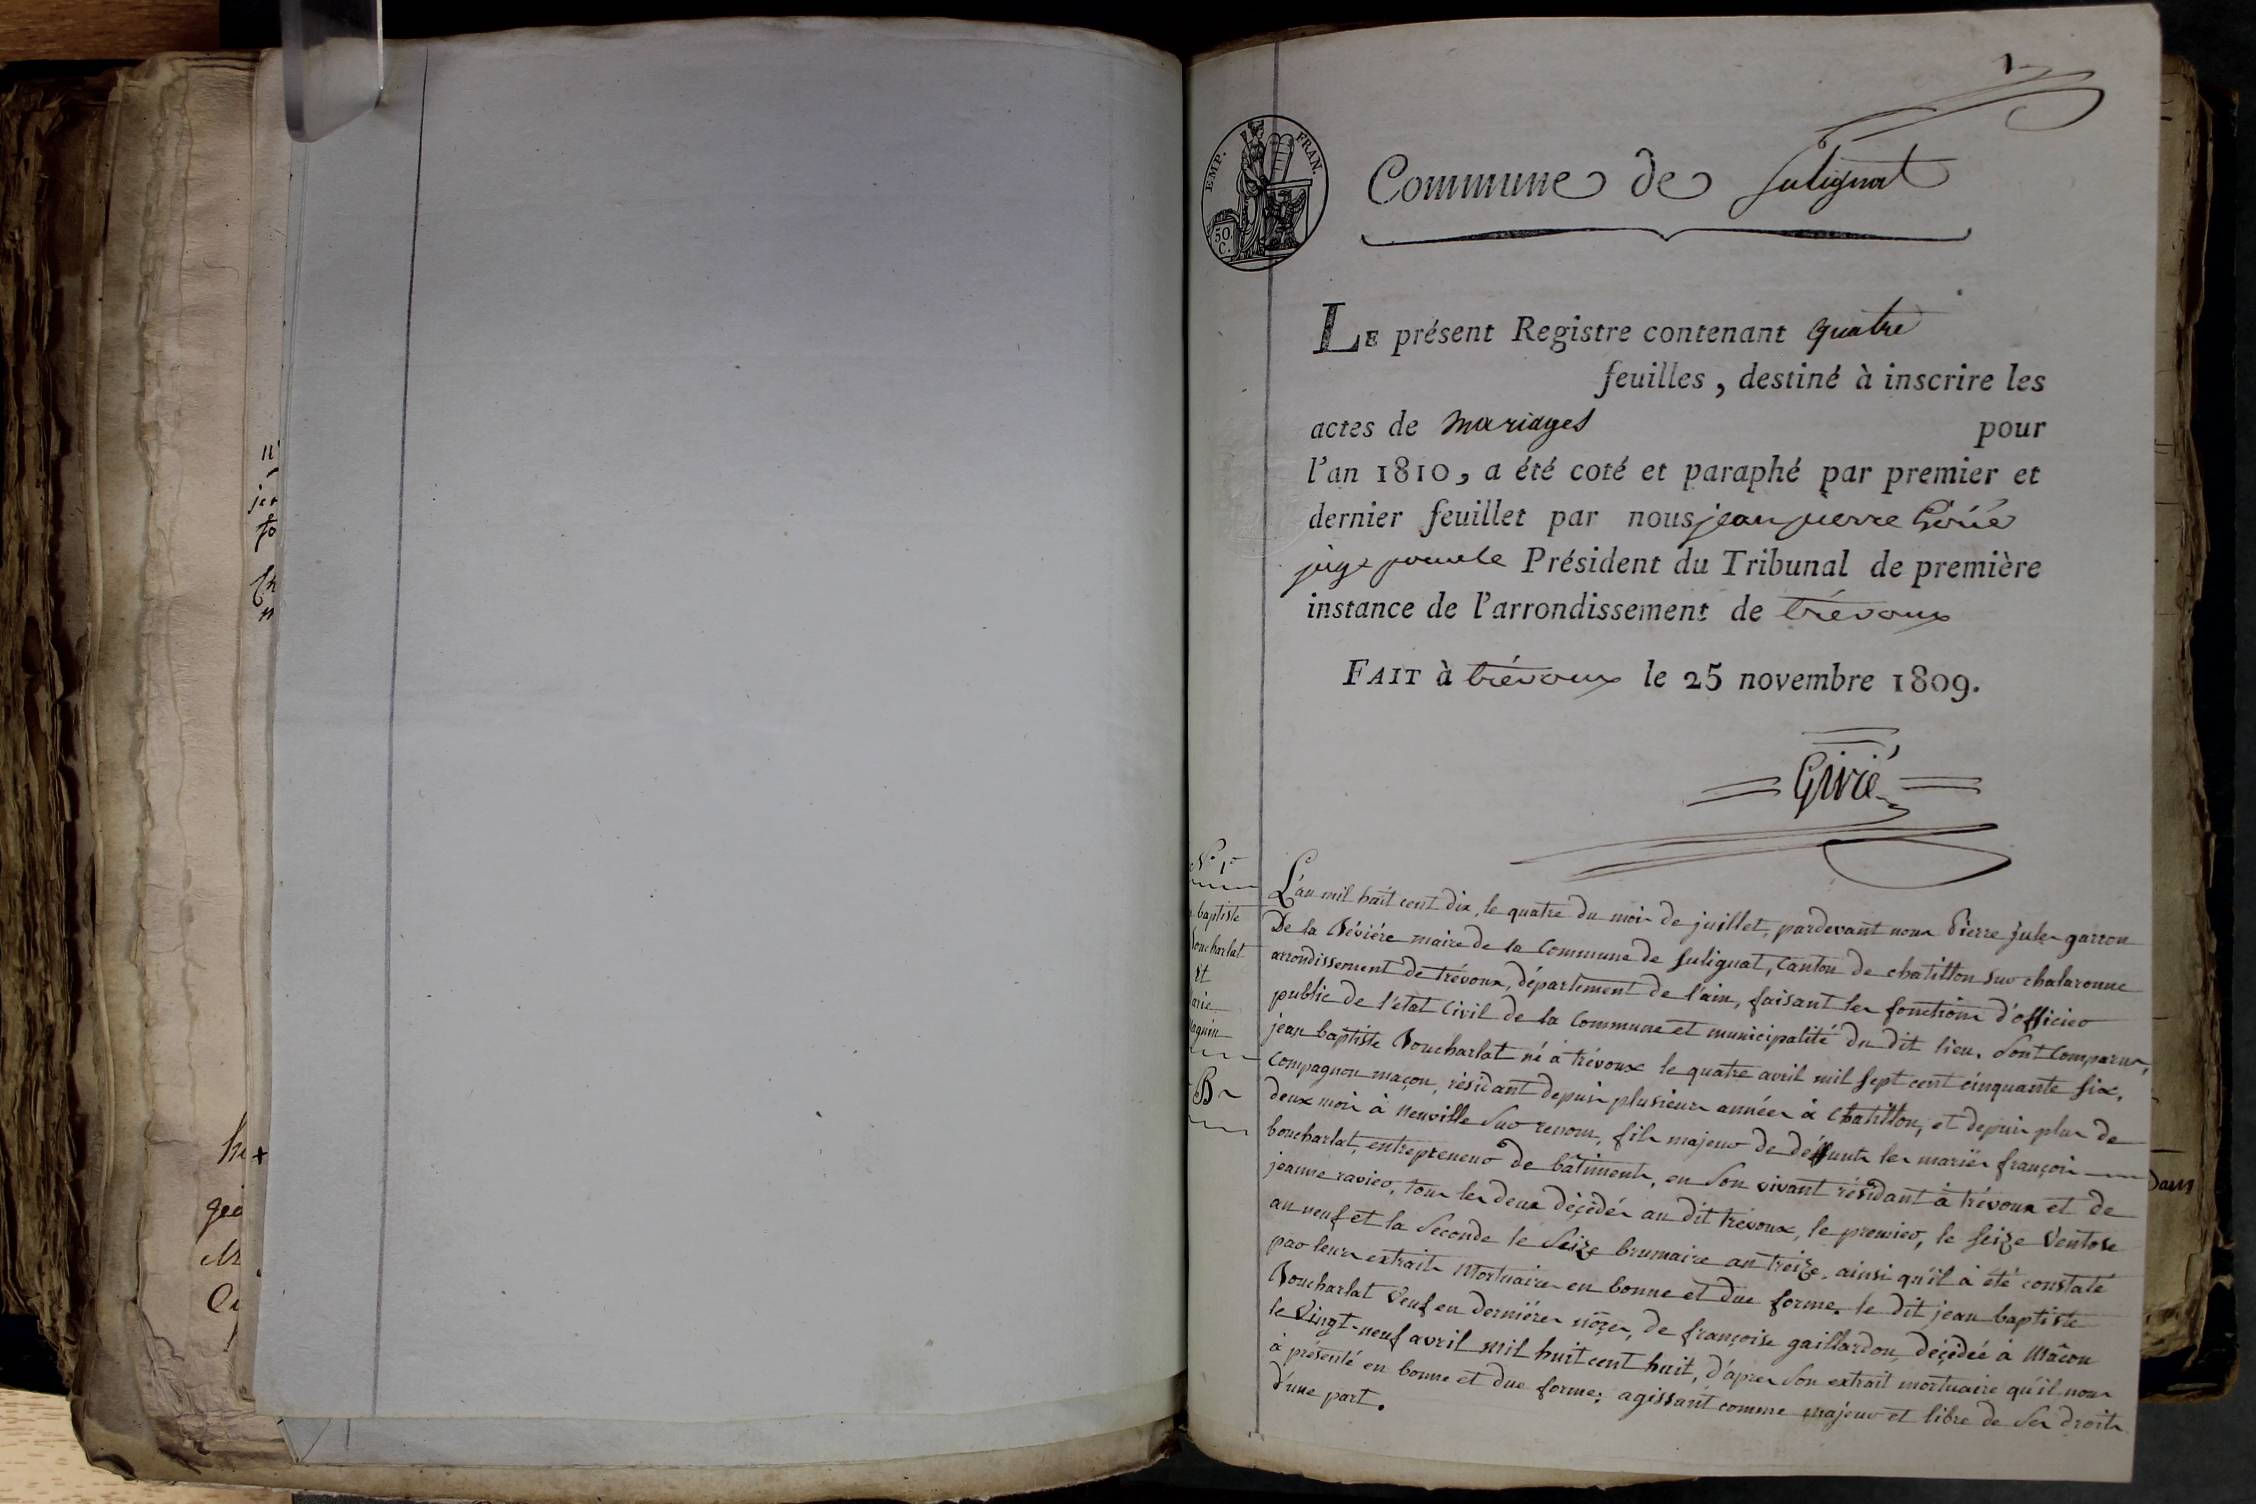 1
EMP. FRAN.
50.
C.
Commune de Sulignat
LE présent Registre contenant quatre
feuilles, destiné à inscrire les
actes de mariages pour
l'an 1810, a été coté et paraphé par premier et
dernier feuillet par nous jean pierre
juge pour le Président du Tribunal de première
instance de l'arrondissement de trévoux
FAIT à trévoux le 25 novembre 1809.
N° 1er
baptiste
oucharlat
et
arie
aguin
B
L'an mil huit cent dix, le quatre du mois de juillet, pardevant nous Pierre jules garron
De la Bévière maire de la Commune de Sulignat, canton de chatillon sur chalaronne
arrondissement de trévoux, département de l'ain, faisant les fonctions d'officier
public de l'état Civil de la Commune et municipalité du dit lieu. Sont Comparus,
jean baptiste Boucharlat né à trévoux le quatre avril mil sept cent cinquante six,
Compagnon maçon, résidant depuis plusieurs années à Chatillon, et depuis plus de
deux mois à neuville Sur renom, fils majeur de deffunts les mariés françois
boucharlat, entrepreneur de bâtiments, en Son vivant résidant à trévoux et de
jeanne ravier, tous les deux décédés au dit trévoux, le premier, le seize Ventose
an neuf et la Seconde le Seize brumaire an treize, ainsi qu'il à été constaté
par leurs extraits Mortuaires en bonne et due forme. le dit jean baptiste
Boucharlat Veuf en dernières nôçes, de françoise gaillardon, décédée à Mâcon
le Vingt-neuf avril mil huit cent huit, d'après Son extrait mortuaire qu'il nous
à présenté en bonne et due forme; agissant comme majeur et libre de Ses droits
d'une part.
Dans